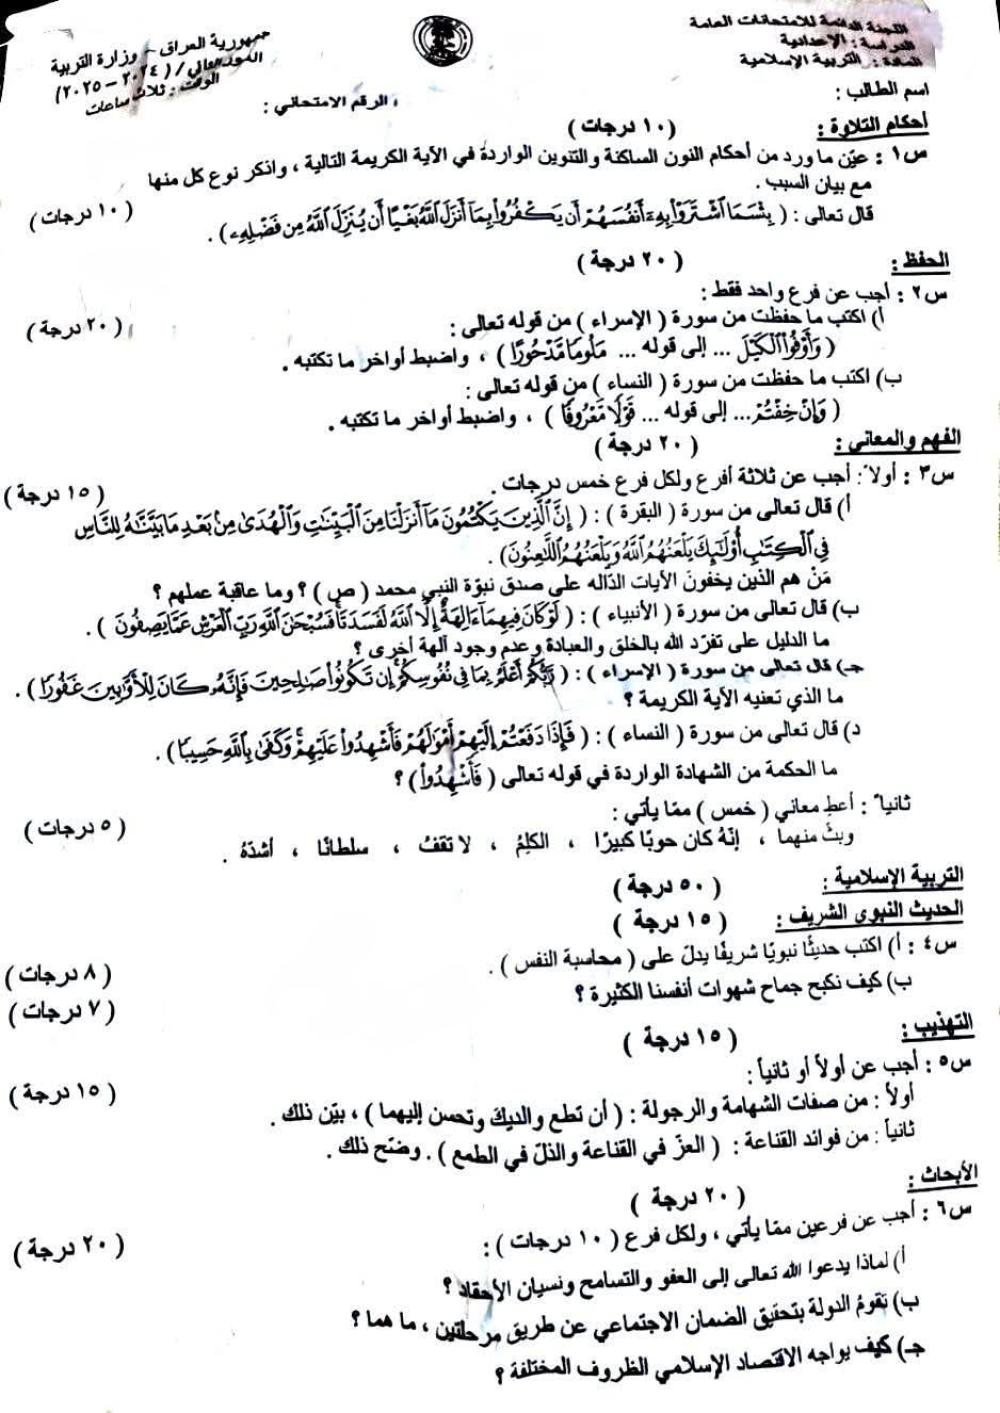 اللجنة الدائمة للامتحانات العامة
الدراسة : الإعدادية
المادة : التربية الإسلامية
جمهورية العراق - وزارة التربية
(٢٠٢٤ - ٢٠٢٥)
الوقت : ثلاث ساعات
اسم الطالب :
الرقم الامتحاني :
أحكام التلاوة : ( ١٠ درجات )
س١ : عيّن ما ورد من أحكام النون الساكنة والتنوين الواردة في الآية الكريمة التالية ، واذكر نوع كل منها
مع بيان السبب .
قال تعالى : ( بِئْسَمَا ٱشْتَرَوْا۟ بِهِۦٓ أَنفُسَهُمْ أَن يَكْفُرُوا۟ بِمَآ أَنزَلَ ٱللَّهُ بَغْيًا أَن يُنَزِّلَ ٱللَّهُ مِن فَضْلِهِۦ ) . ( ١٠ درجات )
الحفظ : ( ٢٠ درجة )
س٢ : أجب عن فرع واحد فقط :
أ) اكتب ما حفظت من سورة ( الإسراء ) من قوله تعالى : ( ٢٠ درجة )
( وَأَوْفُوا۟ ٱلْكَيْلَ ... إلى قوله ... مَلُومًا مَّدْحُورًا ) ، واضبط أواخر ما تكتبه .
ب) اكتب ما حفظت من سورة ( النساء ) من قوله تعالى :
( وَإِنْ خِفْتُمْ ... إلى قوله ... قَوْلًا مَّعْرُوفًا ) ، واضبط أواخر ما تكتبه .
الفهم والمعاني : ( ٢٠ درجة )
س٣ : أولاً : أجب عن ثلاثة أفرع ولكل فرع خمس درجات . ( ١٥ درجة )
أ) قال تعالى من سورة ( البقرة ) : ( إِنَّ ٱلَّذِينَ يَكْتُمُونَ مَآ أَنزَلْنَا مِنَ ٱلْبَيِّنَٰتِ وَٱلْهُدَىٰ مِنۢ بَعْدِ مَا بَيَّنَّٰهُ لِلنَّاسِ
فِى ٱلْكِتَٰبِ أُو۟لَٰٓئِكَ يَلْعَنُهُمُ ٱللَّهُ وَيَلْعَنُهُمُ ٱللَّٰعِنُونَ ) .
مَنْ هم الذين يخفون الآيات الدّاله على صدق نبوّة النبي محمد ( ص ) ؟ وما عاقبة عملهم ؟
ب) قال تعالى من سورة ( الأنبياء ) : ( لَوْ كَانَ فِيهِمَآ ءَالِهَةٌ إِلَّا ٱللَّهُ لَفَسَدَتَا فَسُبْحَٰنَ ٱللَّهِ رَبِّ ٱلْعَرْشِ عَمَّا يَصِفُونَ ) .
ما الدليل على تفرّد الله بالخلق والعبادة وعدم وجود آلهة أخرى ؟
جـ) قال تعالى من سورة ( الإسراء ) : ( رَّبُّكُمْ أَعْلَمُ بِمَا فِى نُفُوسِكُمْ إِن تَكُونُوا۟ صَٰلِحِينَ فَإِنَّهُۥ كَانَ لِلْأَوَّٰبِينَ غَفُورًا ) .
ما الذي تعنيه الآية الكريمة ؟
د) قال تعالى من سورة ( النساء ) : ( فَإِذَا دَفَعْتُمْ إِلَيْهِمْ أَمْوَٰلَهُمْ فَأَشْهِدُوا۟ عَلَيْهِمْ وَكَفَىٰ بِٱللَّهِ حَسِيبًا ) .
ما الحكمة من الشهادة الواردة في قوله تعالى ( فَأَشْهِدُوا۟ ) ؟
ثانياً : أعطِ معاني ( خمس ) ممّا يأتي : ( ٥ درجات )
وبثّ منهما ، إنّهُ كان حوبًا كبيرًا ، الكَلِمُ ، لا تقفُ ، سلطانًا ، أشدّهُ .
التربية الإسلامية : ( ٥٠ درجة )
الحديث النبوي الشريف : ( ١٥ درجة )
س٤ : أ) اكتب حديثًا نبويًا شريفًا يدلّ على ( محاسبة النفس ) . ( ٨ درجات )
ب) كيف نكبح جماح شهوات أنفسنا الكثيرة ؟ ( ٧ درجات )
التهذيب : ( ١٥ درجة )
س٥ : أجب عن أولاً أو ثانياً : ( ١٥ درجة )
أولاً : من صفات الشهامة والرجولة : ( أن تطع والديك وتحسن إليهما ) ، بيّن ذلك .
ثانياً : من فوائد القناعة : ( العزّ في القناعة والذلّ في الطمع ) . وضّح ذلك .
الأبحاث : ( ٢٠ درجة )
س٦ : أجب عن فرعين ممّا يأتي ، ولكل فرع ( ١٠ درجات ) : ( ٢٠ درجة )
أ) لماذا يدعوا الله تعالى إلى العفو والتسامح ونسيان الأحقاد ؟
ب) تقومُ الدولة بتحقيق الضمان الاجتماعي عن طريق مرحلتين ، ما هما ؟
جـ) كيف يواجه الاقتصاد الإسلامي الظروف المختلفة ؟